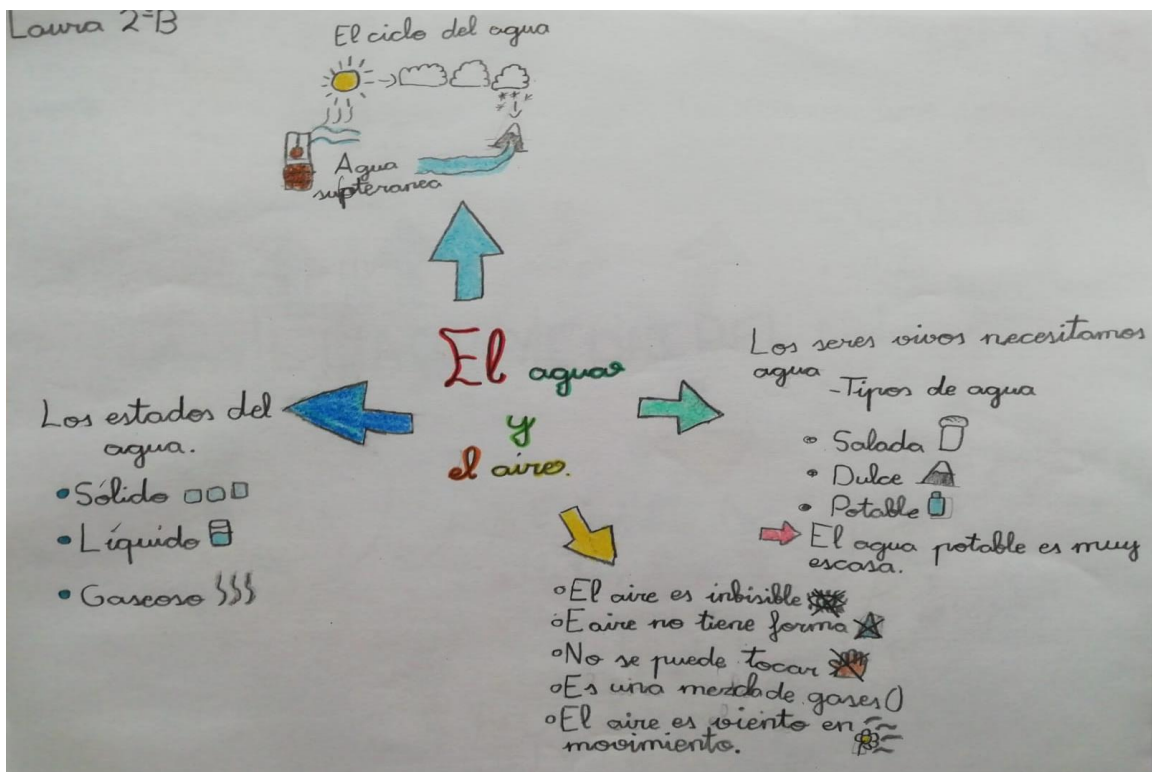 Laura 2ºB
El ciclo del agua
Agua
supteranea
El agua
y
el aire.
Los estados del
agua.
• Sólido
• Líquido
• Gaseoso
Los seres vivos necesitamos
agua
-Tipos de agua
• Salada
• Dulce
• Potable
El agua potable es muy
escasa.
El aire es inbisible
E aire no tiene forma
No se puede tocar
Es una mezcla de gases()
El aire es viento en
movimiento.